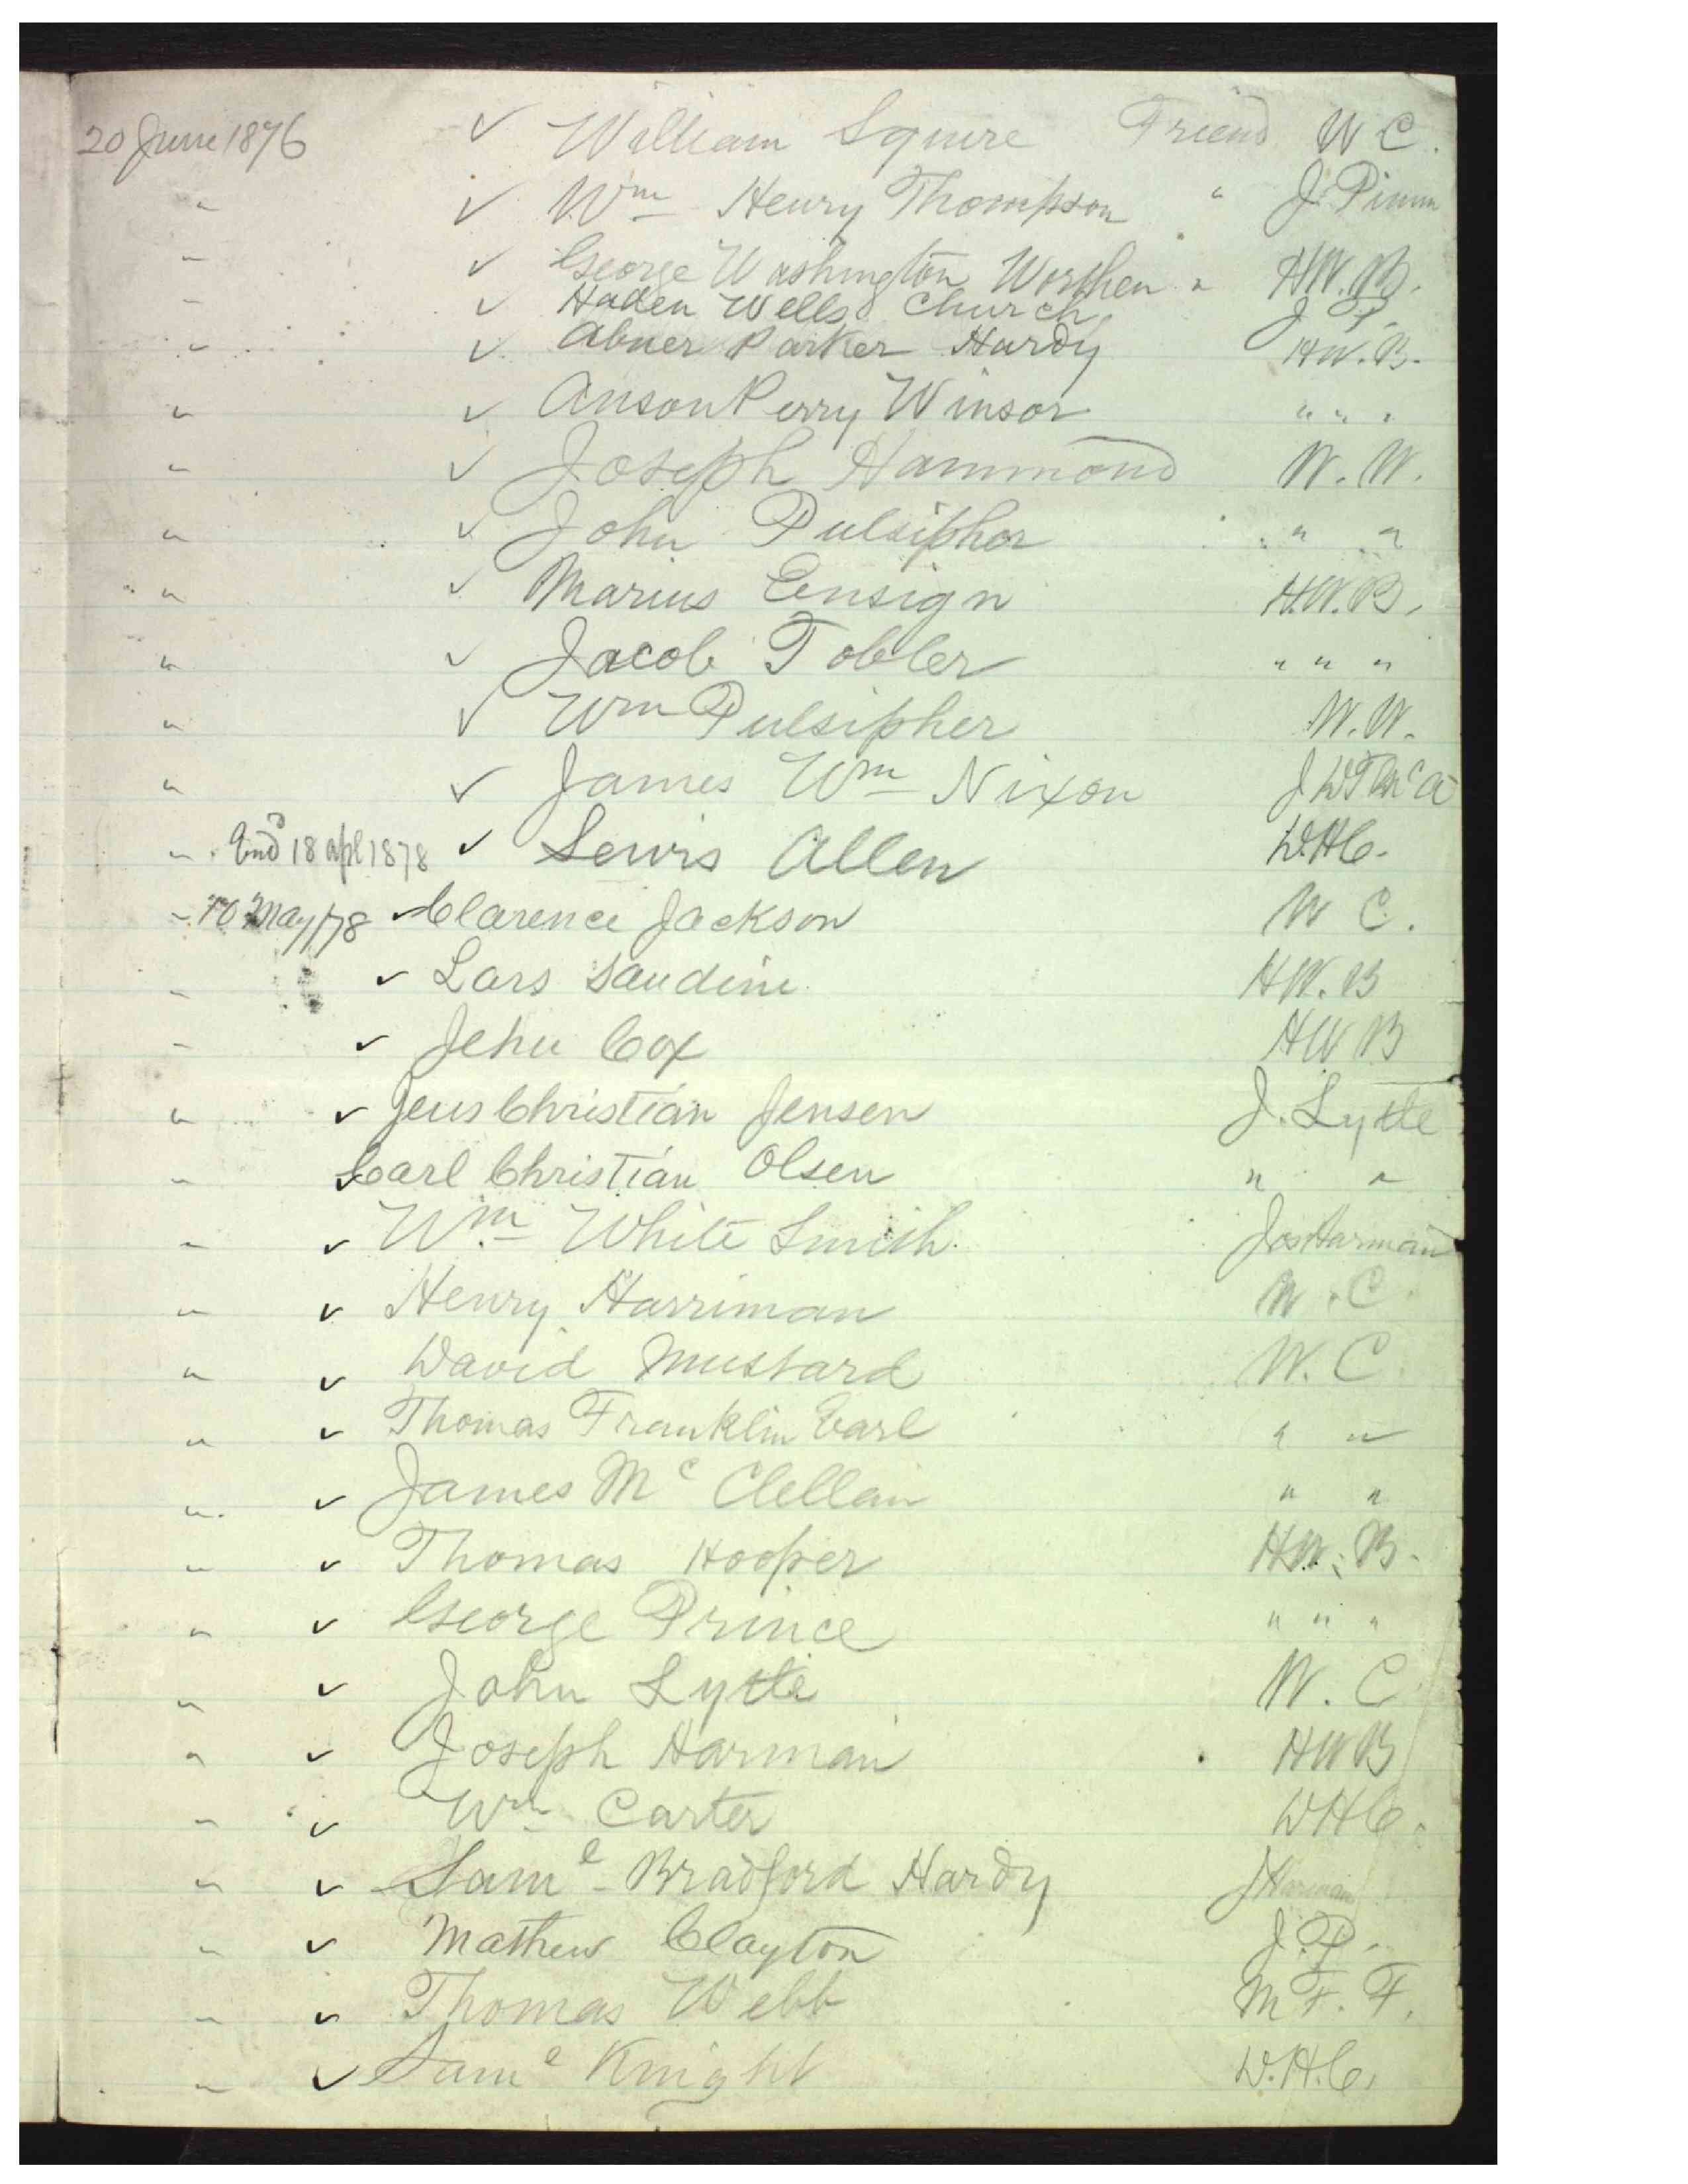 20 June 1876 ✓ William Squire Friend W C.
" ✓ Wm Henry Thompson " J. Pimm
" ✓ George Washington Worthen " HW. B.
" ✓ Haden Wells Church J P.
" ✓ Abner Parker Hardy HW. B.
" ✓ Anson Perry Winsor " " "
" ✓ Joseph Hammond W. W.
" ✓ John Pulsipher " "
" ✓ Marius Ensign H.W. B.
" ✓ Jacob Tobler " " "
" ✓ Wm Pulsipher W. W.
" ✓ James Wm Nixon
" Endd 18 apl 1878 ✓ Lewis Allen W.H C.
" 10 May/78 ✓ Clarence Jackson W C.
" ✓ Lars Sandin HW. B
" ✓ Jehu Cox HW B
" ✓ Jens Christian Jensen J. Lytle
" ✓ Carl Christian Olsen " "
" ✓ Wm White Smith. Jos Harman
" ✓ Henry Harriman W. C.
" ✓ David Mustard W. C
" ✓ Thomas Franklin Earl " "
" ✓ James Mc Clellan " "
" ✓ Thomas Hooper HW. B.
" ✓ George Prince " " "
" ✓ John Lytle W. C
" ✓ Joseph Harman HW B
" ✓ Wm Carter W H C.
" ✓ Saml Bradford Hardy J Harman
" ✓ Mathew Clayton J. P.
" ✓ Thomas Webb M F. F.
" ✓ Saml Knight W. H. C.